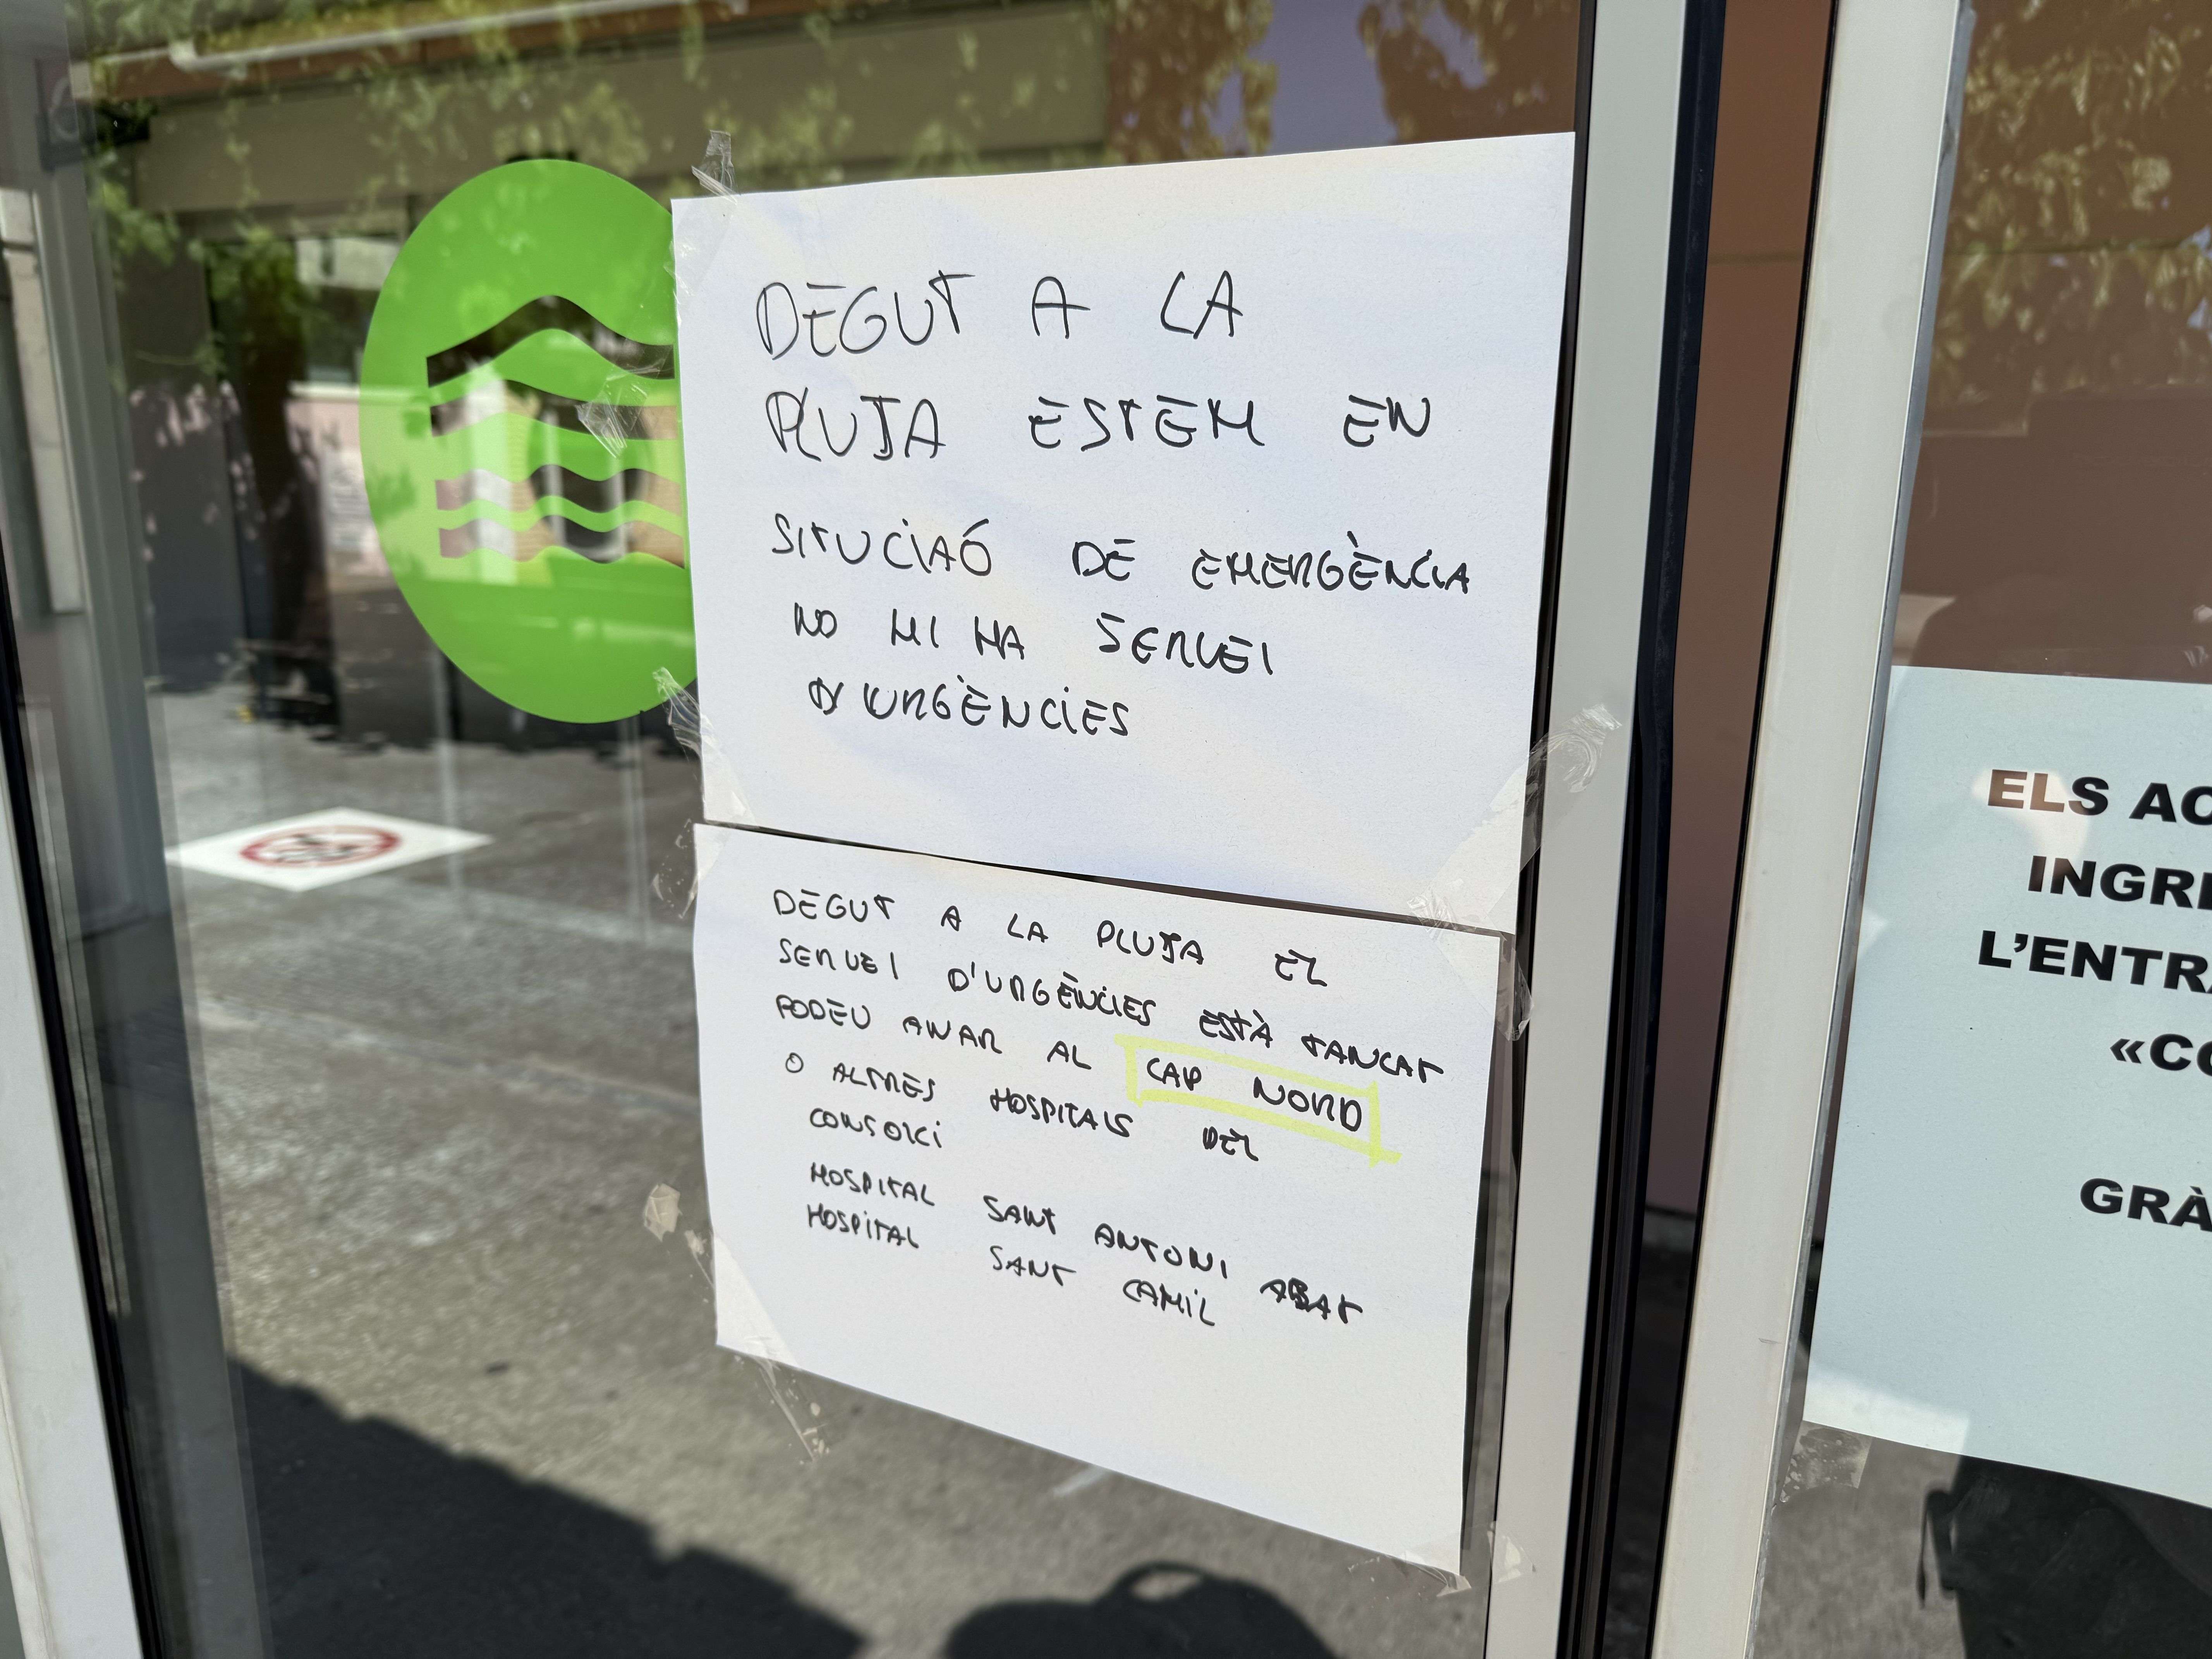 DEGUT A LA
PLUJA ESTEM EN
SITUCIAÓ DE EMERGÈNCIA
NO HI HA SERVEI
D'URGÈNCIES
DEGUT A LA PLUJA EL
SERVEI D'URGÈNCIES ESTÀ TANCAT
PODEU ANAR AL CAP NORD
O ALTRES HOSPITALS DEL
CONSORCI
HOSPITAL SANT ANTONI ABAT
HOSPITAL SANT CAMIL
ELS AC
INGRE
L'ENTRA
«CO
GRÀ